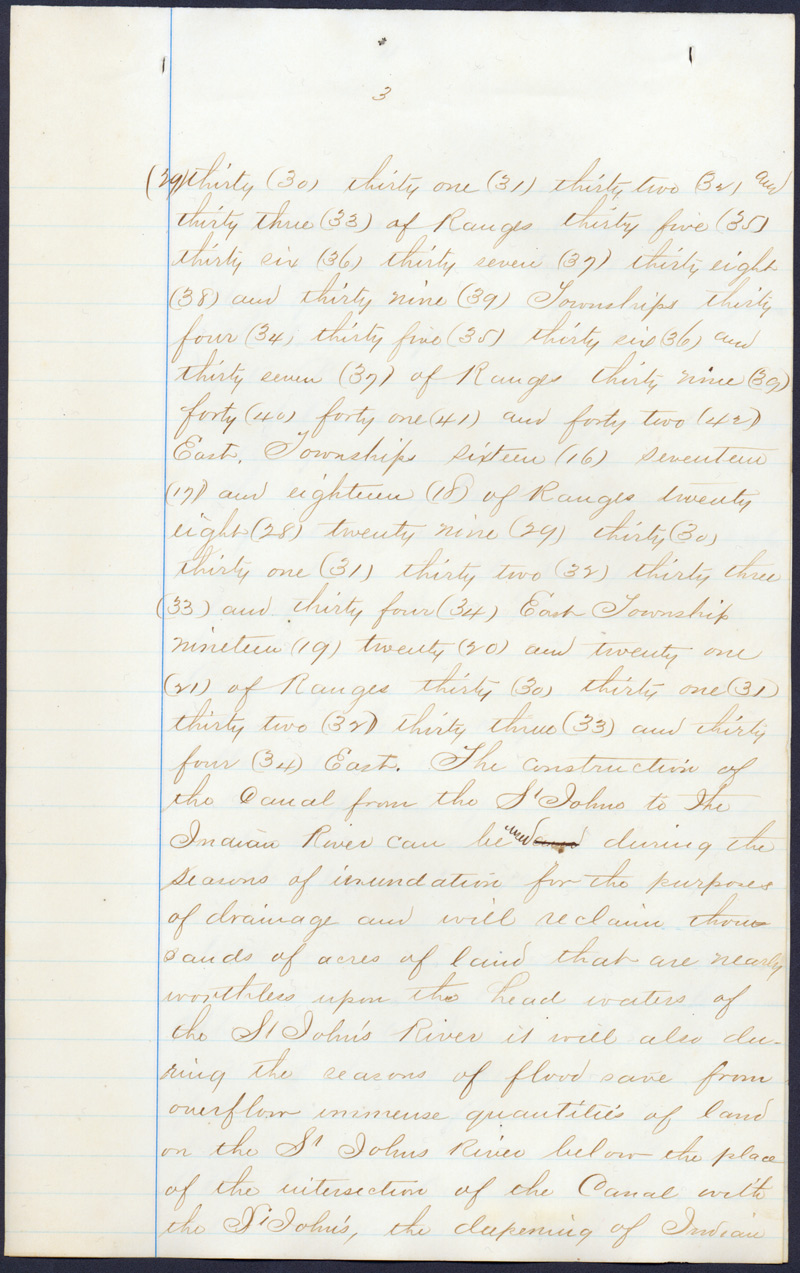 3
(29) thirty (30) thirty one (31) thirty two (32) and
thirty three (33) of Ranges thirty five (35)
thirty six (36) thirty seven (37) thirty eight
(38) and thirty nine (39) Townships thirty
four (34) thirty five (35) thirty six (36) and
thirty seven (37) of Ranges thirty nine (39)
forty (40) forty one (41) and forty two (42)
East. Townships sixteen (16) seventeen
(17) and eighteen (18) of Ranges twenty
eight (28) twenty nine (29) thirty (30)
thirty one (31) thirty two (32) thirty three
(33) and thirty four (34) East Township
nineteen (19) twenty (20) and twenty one
(21) of Ranges thirty (30) thirty one (31)
thirty two (32) thirty three (33) and thirty
four (34) East. The construction of
the Canal from the St Johns to the
Indian River can be used during the
seasons of inundation for the purposes
of drainage and will reclaim thou-
sands of acres of land that are nearly
worthless upon the head waters of
the St John's River it will also du-
ring the seasons of flood save from
overflow immense quantities of land
on the St Johns River below the place
of the intersection of the Canal with
the St John's, the deepening of Indian